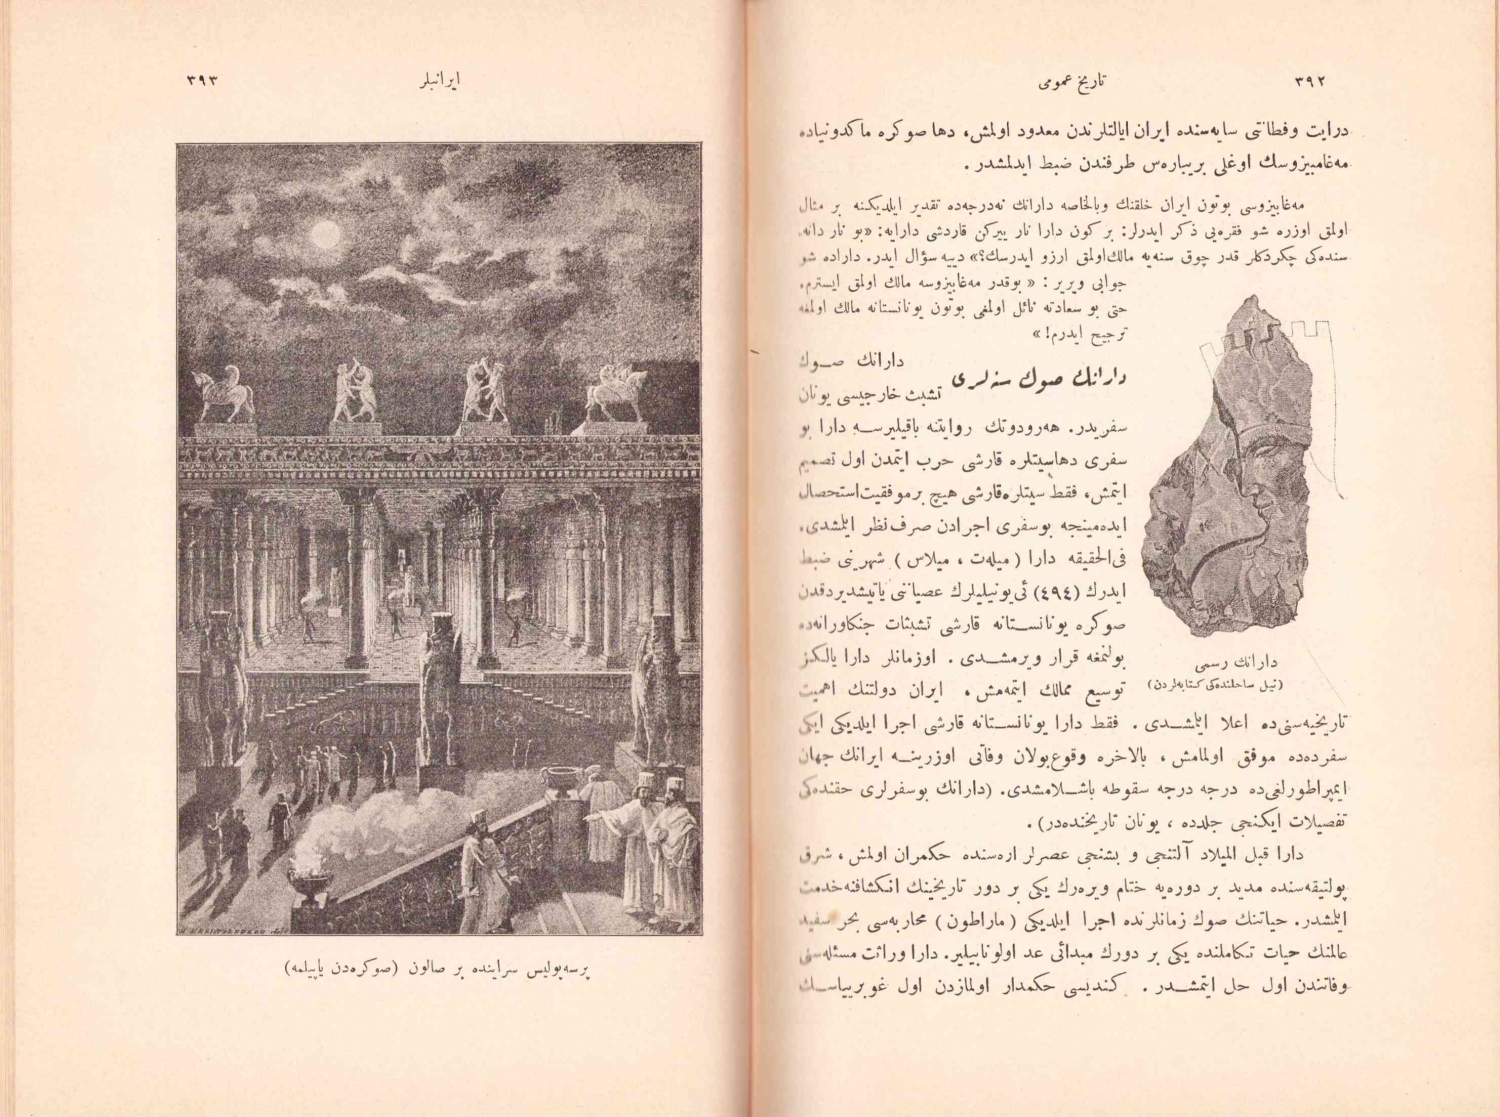 ٣٩٢
تاریخ عمومی
درایت وفطانتی سایه‌سنده ایران ایالتلرندن معدود اولمش، دها صوکره ماکدونیاده
مه‌غامبیزوسك اوغلی بریباره‌س طرفندن ضبط ایدلمشدر .
مه‌غابیزوسی بوتون ایران خلقنك وبالخاصه دارانك نه‌درجه‌ده تقدیر ایلدیکنه بر مثال
اولمق اوزره شو فقره‌یی ذکر ایدرلر: بر کون دارا نار ییرکن قاردشی دارایه: «بو نار دانه
سنده‌کی چکردکلر قدر چوق سنه‌یه مالك اولمق ارزو ایدرسك؟» دییه سؤال ایدر. داراده شو
جوابی ویریر : « بوقدر مه‌غابیزوسه مالك اولمق ایسترم.
حتی بو سعادته نائل اولمغی بوتون یونانستانه مالك اولمغه
ترجیح ایدرم! »
دارانك صوك سنه‌لری
دارانك صوك
تشبث خارجیسی یونان
سفریدر. هه‌رودوتك روایتنه باقیلیرسه دارا بو
سفری دهاسیتلره قارشی حرب ایتمدن اول تصمیم
ایتمش، فقط سیتلره‌قارشی هیچ برموفقیت‌استحصال
ایده‌مینجه بوسفری اجرادن صرف‌نظر ایلمشدی.
فی‌الحقیقه دارا ( میله‌ت ، میلاس ) شهرینی ضبط
ایدرك (٤٩٤) ئی‌یونیلیلرك عصیانتی یاتیشدیردقدن
صوکره یونانستانه قارشی تشبثات جنکاورانه‌ده
بولنمغه قرار ویرمشدی . اوزمانلر دارا یالکز
توسیع ممالك ایتمه‌مش ، ایران دولتنك اهمیت
دارانك رسمی
(نیل ساحلنده‌کی کتابه‌لردن)
تاریخیه‌سنی‌ده اعلا ایلمشدی . فقط دارا یونانستانه قارشی اجرا ایلدیکی ایکی
سفرده‌ده موفق اولمامش ، بالاخره وقوع‌بولان وفاتی اوزرینه ایرانك جهان
ایمپراطورلغی‌ده درجه درجه سقوطه باشلامشدی. (دارانك بوسفرلری حقنده‌کی
تفصیلات ایکنجی جلدده ، یونان تاریخنده‌در) .
دارا قبل المیلاد آلتنجی و بشنجی عصرلر اره‌سنده حکمران اولمش ، شرق
پولتیقه‌سنده مدید بر دوره‌یه ختام ویره‌رك یکی بر دور تاریخینك انکشافنه‌خدمت
ایلمشدر. حیاتنك صوك زمانلرنده اجرا ایلدیکی ( ماراطون ) محاربه‌سی بحر سفید
عالمنك حیات تکاملنده یکی بر دورك مبدائی عد اولونابیلیر. دارا وراثت مسئله‌سنی
وفاتندن اول حل ایتمشدر . کندیسی حکمدار اولمازدن اول غوبریباسك
٣٩٣
ایرانیلر
پرسه‌پولیس سراینده بر صالون (صوکره‌دن یاپیلمه)